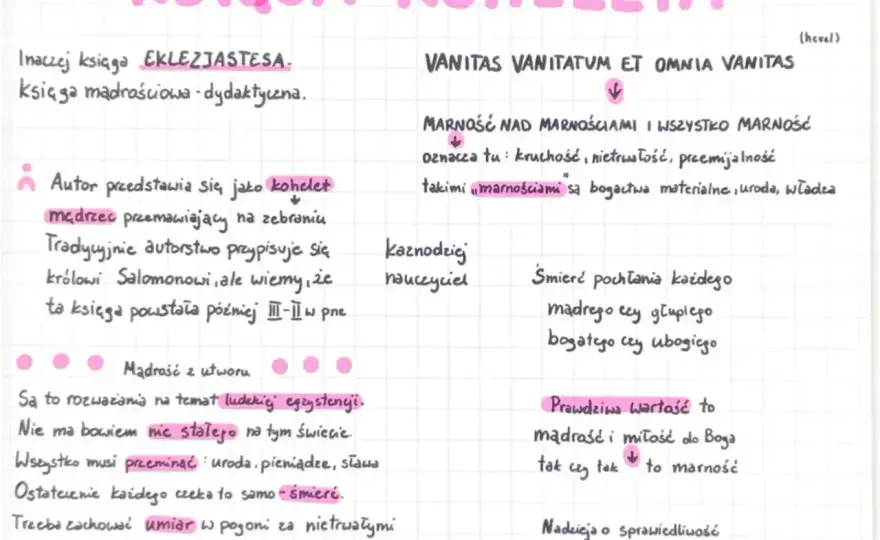 KSIĘGA KOHELETA
Inaczej księga EKLEZJASTESA.
księga mądrościowa - dydaktyczna.
Autor przedstawia się jako kohelet
mędrzec przemawiający na zebraniu
Tradycyjnie autorstwo przypisuje się
królowi Salomonowi, ale wiemy, że
ta księga powstała później III-II w pne
kaznodziej
nauczyciel
Mądrość z utworu
Są to rozważania na temat ludzkiej egzystencji.
Nie ma bowiem nic stałego na tym świecie.
Wszystko musi przeminąć : uroda, pieniądze, sława
Ostatecznie każdego czeka to samo - śmierć.
Trzeba zachować umiar w pogoni za nietrwałymi
(hevel)
VANITAS VANITATUM ET OMNIA VANITAS
MARNOŚĆ NAD MARNOŚCIAMI I WSZYSTKO MARNOŚĆ
oznacza tu : kruchość, nietrwałość, przemijalność
takimi „marnościami" są bogactwa materialne, uroda, władza
Śmierć pochłania każdego
mądrego czy głupiego
bogatego czy ubogiego
Prawdziwa wartość to
mądrość i miłość do Boga
tak czy tak to marność
Nadzieja o sprawiedliwość